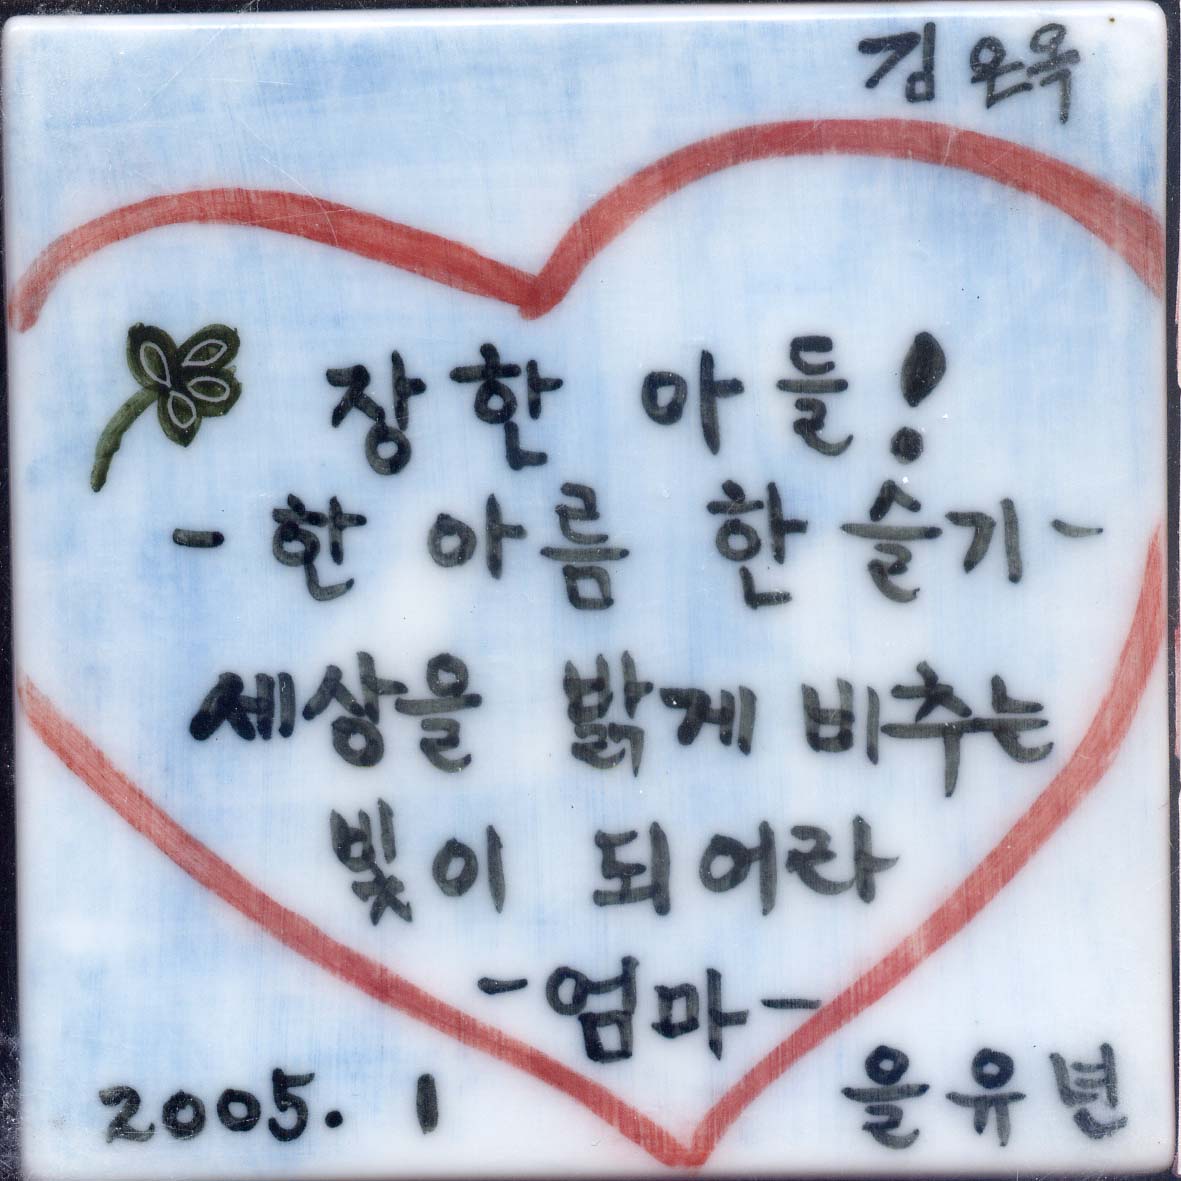 김은옥
장한 아들!
- 한 아름 한슬기 -
세상을 밝게 비추는
빛이 되어라
- 엄마 -
2005. 1
을유년